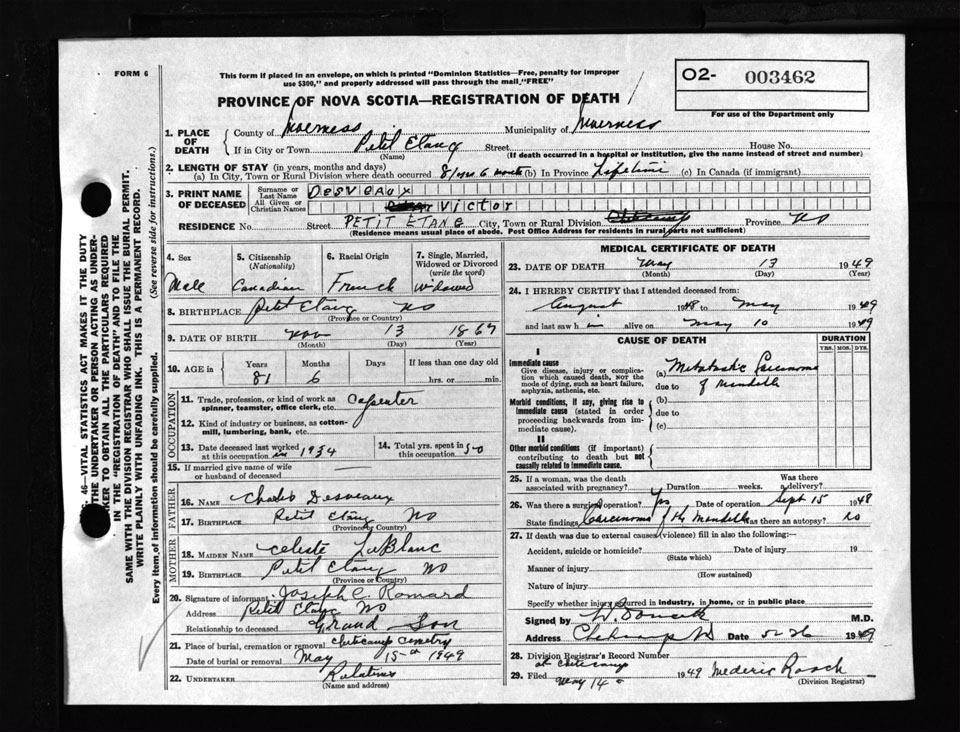 FORM 6
This form if placed in an envelope, on which is printed "Dominion Statistics—Free, penalty for improper
use $300," and properly addressed will pass through the mail "FREE"
O2- 003462
For use of the Department only
PROVINCE OF NOVA SCOTIA—REGISTRATION OF DEATH
1. PLACE OF DEATH
County of Inverness Municipality of Inverness
If in City or Town Petit Etang Street House No.
(Name) (If death occurred in a hospital or institution, give the name instead of street and number)
2. LENGTH OF STAY (in years, months and days)
(a) In City, Town or Rural Division where death occurred 81 yrs 6 months (b) In Province Lifetime (c) In Canada (if immigrant)
3. PRINT NAME OF DECEASED
Surname or Last Name DESVEAUX
All Given or Christian Names Victor
RESIDENCE No. Street PETIT ETANG City, Town or Rural Division Cheticamp Province NS
(Residence means usual place of abode. Post Office Address for residents in rural parts not sufficient)
4. Sex
Male
5. Citizenship
(Nationality)
Canadian
6. Racial Origin
French
7. Single, Married,
Widowed or Divorced
(write the word)
Widowed
8. BIRTHPLACE Petit Etang NS
(Province or Country)
9. DATE OF BIRTH Nov 13 1867
(Month) (Day) (Year)
10. AGE in
Years Months Days If less than one day old
81 6 hrs. or min.
OCCUPATION
11. Trade, profession, or kind of work as
spinner, teamster, office clerk, etc. Carpenter
12. Kind of industry or business, as cotton-
mill, lumbering, bank, etc.
13. Date deceased last worked
at this occupation in 1934
14. Total yrs. spent in
this occupation 50
15. If married give name of wife
or husband of deceased
FATHER
16. NAME Charles Desveaux
17. BIRTHPLACE Petit Etang NS
(Province or Country)
MOTHER
18. MAIDEN NAME Celeste LeBlanc
19. BIRTHPLACE Petit Etang NS
(Province or Country)
20. Signature of informant Joseph C. Romard
Address Petit Etang NS
Relationship to deceased Grand Son
21. Place of burial, cremation or removal Cheticamp Cemetry
Date of burial or removal May 15th 1949
22. UNDERTAKER Relatives
(Name and address)
MEDICAL CERTIFICATE OF DEATH
23. DATE OF DEATH May 13 1949
(Month) (Day) (Year)
24. I HEREBY CERTIFY that I attended deceased from:
August 1948 to May 1949
and last saw h im alive on May 10 1949
CAUSE OF DEATH
DURATION
YRS. MOS. DYS.
I
Immediate cause
Give disease, injury or complica-
tion which caused death, not the
mode of dying, such as heart failure,
asphyxia, asthenia, etc.
(a) Metastatic Carcinoma
due to of Mandible
Morbid conditions, if any, giving rise to
immediate cause (stated in order
proceeding backwards from im-
mediate cause).
(b)
due to
(c)
II
Other morbid conditions (if important)
contributing to death but not
causally related to immediate cause.
25. If a woman, was the death
associated with pregnancy? Duration weeks. Was there
delivery?
26. Was there a surgical operation? Yes Date of operation Sept 15 1948
State findings Carcinoma of the Mandible Was there an autopsy? no
27. If death was due to external causes (violence) fill in also the following:—
Accident, suicide or homicide? Date of injury 19
(State which)
Manner of injury
(How sustained)
Nature of injury
Specify whether injury occurred in industry, in home, or in public place
Signed by M.D.
Address Cheticamp NS Date 5-26 1949
28. Division Registrar's Record Number
at Cheticamp
29. Filed May 14 1949 Mederic Roach
(Division Registrar)
VITAL STATISTICS ACT MAKES IT THE DUTY
THE UNDERTAKER OR PERSON ACTING AS UNDER-
TO OBTAIN ALL THE PARTICULARS REQUIRED
IN THE "REGISTRATION OF DEATH" AND TO FILE THE
SAME WITH THE DIVISION REGISTRAR WHO SHALL ISSUE THE BURIAL PERMIT.
WRITE PLAINLY WITH UNFADING INK. THIS IS A PERMANENT RECORD.
Every item of information should be carefully supplied. (See reverse side for instructions.)